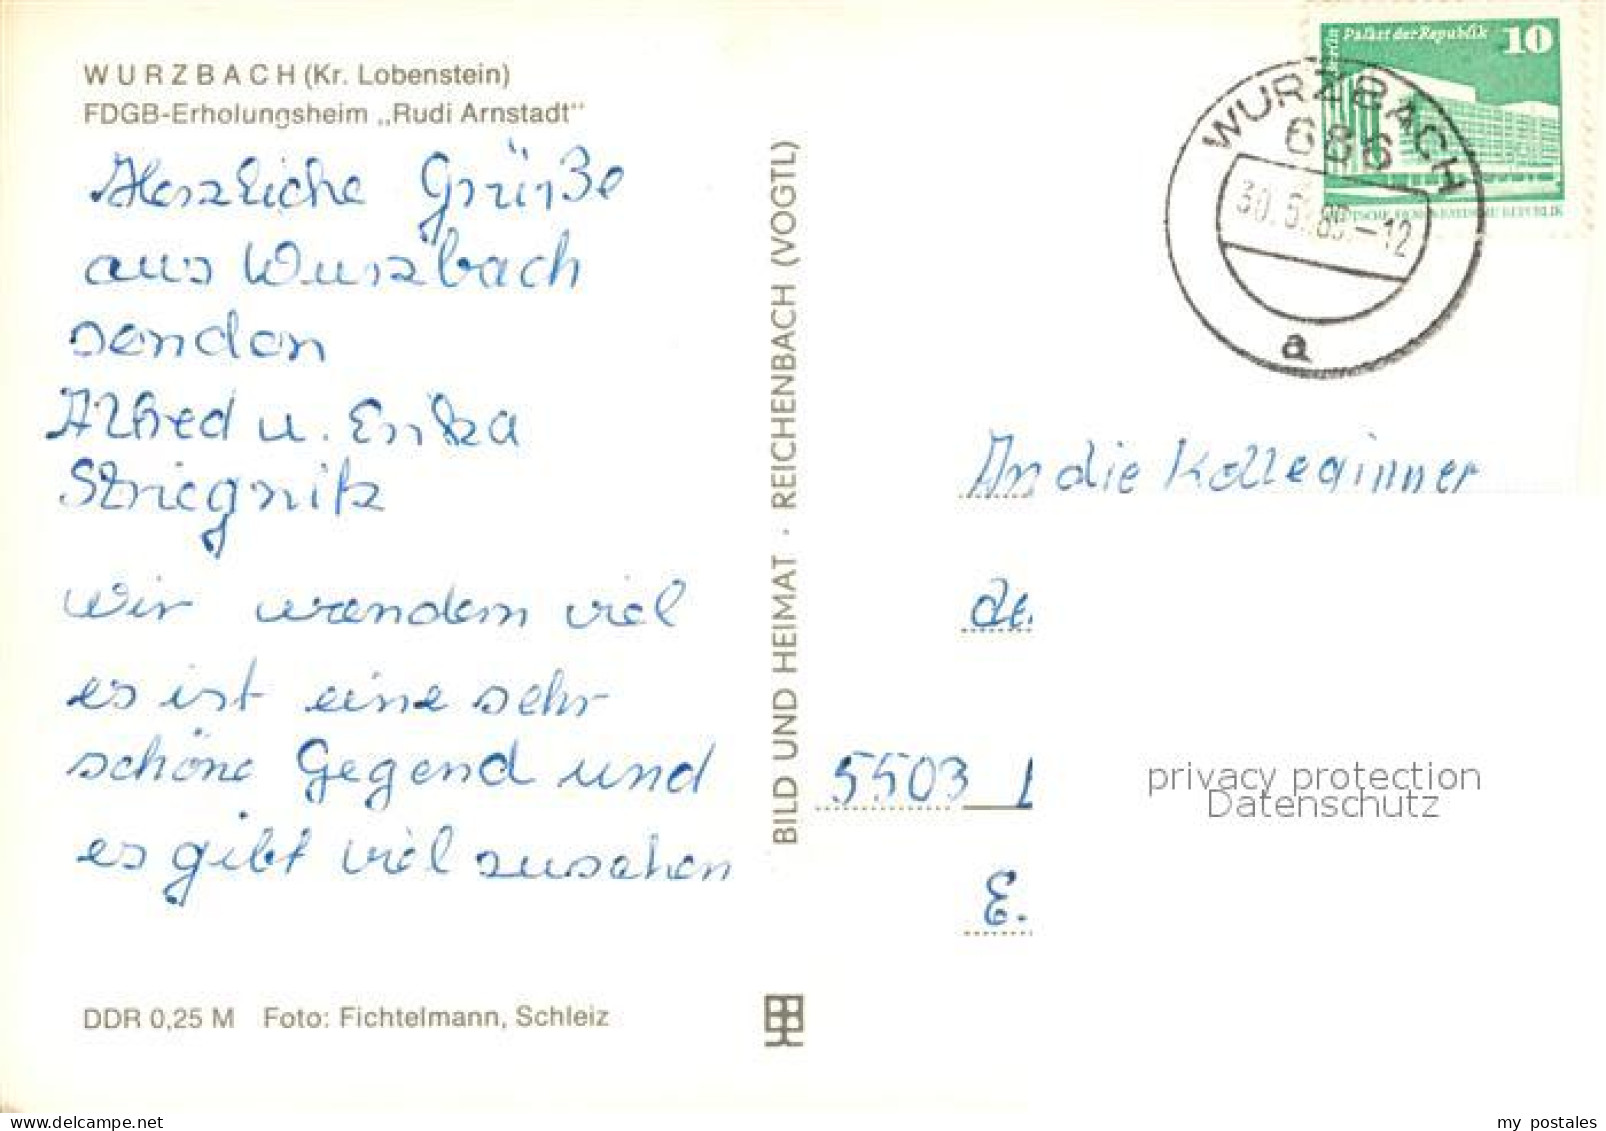 WURZBACH (Kr. Lobenstein)
FDGB-Erholungsheim „Rudi Arnstadt"
Herzliche Grüße
aus Wurzbach
senden
Alfred u. Erika
Striegnitz
wir wandern viel
es ist eine sehr
schöne Gegend und
es gibt viel zusehen
DDR 0,25 M Foto: Fichtelmann, Schleiz
BILD UND HEIMAT · REICHENBACH (VOGTL)
Berlin Palast der Republik 10
DEUTSCHE DEMOKRATISCHE REPUBLIK
WURZBACH
686
-12
a
An die Kolleginnen
de
5503
E.
privacy protection
Datenschutz
www.delcampe.net
my_postales